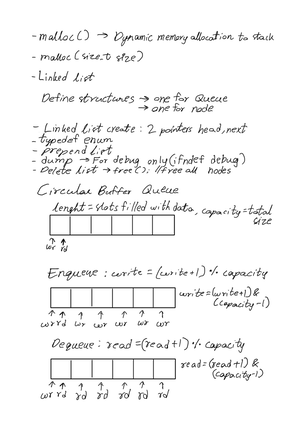 - malloc() → Dynamic memory allocation to stack
- malloc (size_t size)
- Linked list
Define structures → one for Queue
→ one for node
- Linked list create : 2 pointers head, next
- typedef enum
- prepend list
- dump → For debug only (ifndef debug)
- Delete list → free(); //free all nodes
Circular Buffer Queue
lenght = slots filled with data, capacity = total size
wr rd
Enqueue : write = (write+1) % capacity
write = (write+1) & (capacity-1)
wr rd wr wr wr wr wr
Dequeue : read = (read+1) % capacity
read = (read+1) & (capacity-1)
wr rd rd rd rd rd rd